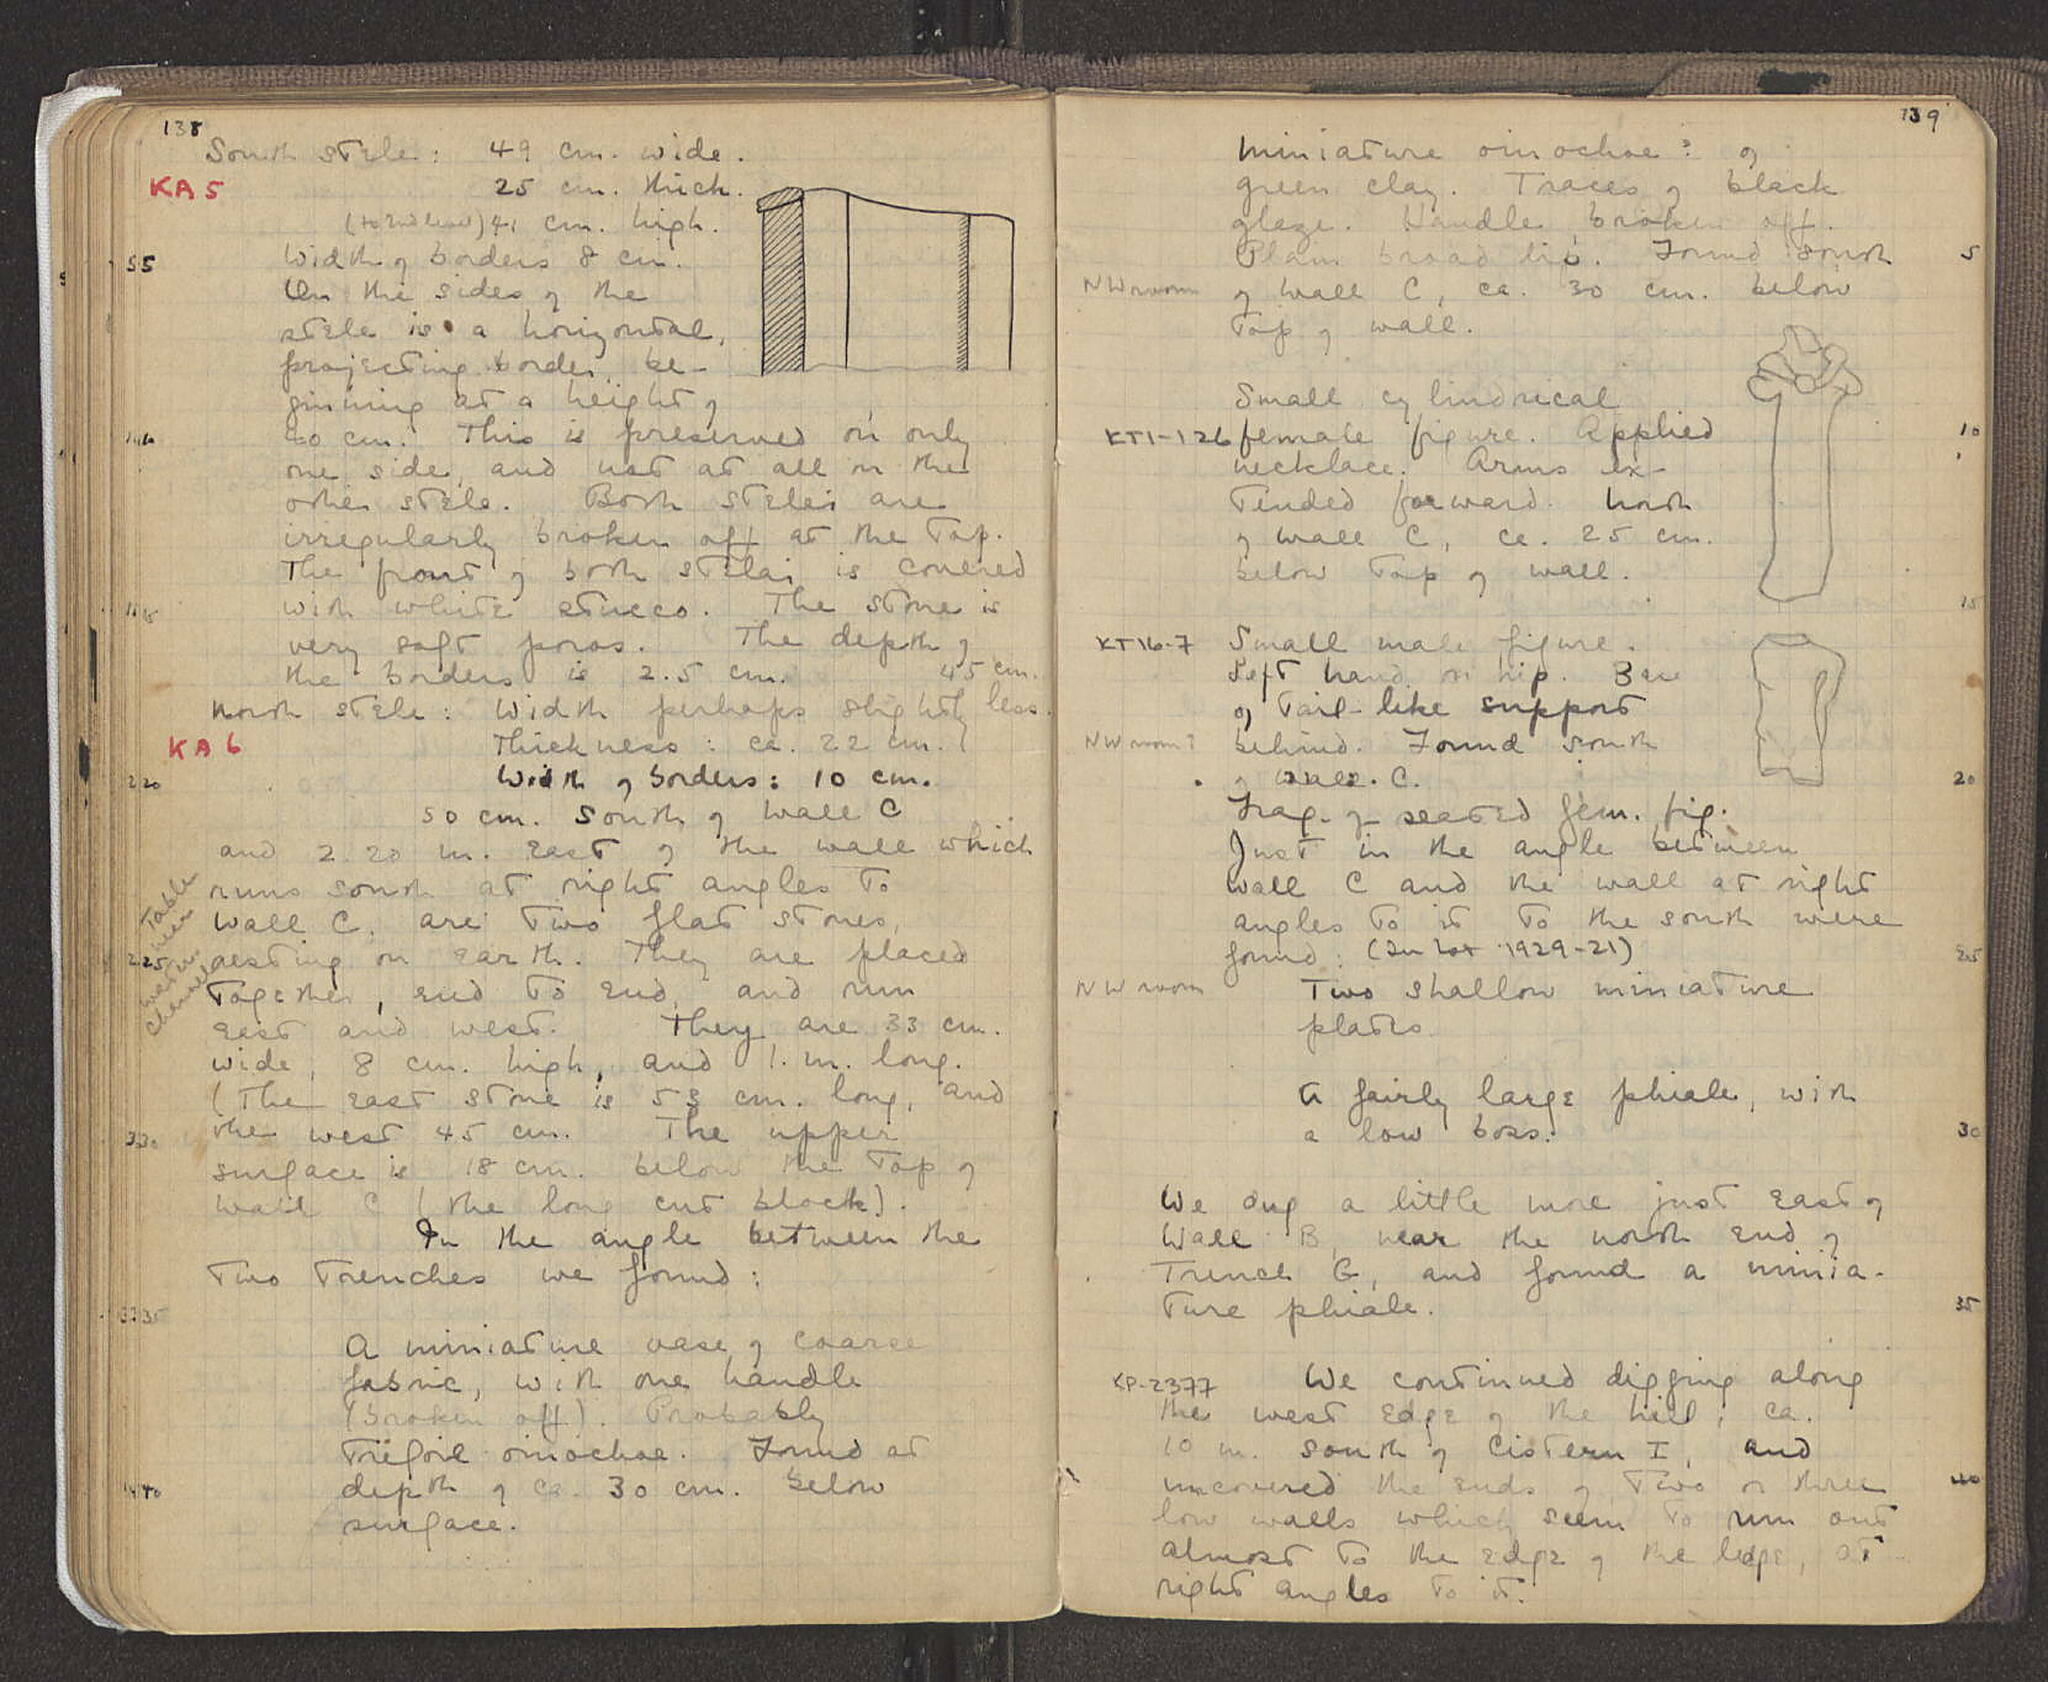 138
South stele: 49 cm. wide.
KA 5
25 cm. thick.
41 cm. high.
55
Width of borders 8 cm.
On the sides of the
stele is a horizontal,
projecting border be-
ginning at a height of
40 cm. This is preserved on only
one side, and not at all on the
other stele. Both stelai are
irregularly broken off at the top.
The front of both stelai is covered
with white stucco. The stone is
very soft poros. The depth of
the borders is 2.5 cm. 45 cm.
North stele: Width perhaps slightly less.
KA 6
Thickness: ca. 22 cm.
Width of borders: 10 cm.
50 cm. South of wall C
and 2.20 m. East of the wall which
runs south at right angles to
wall C, are two flat stones,
resting on earth. They are placed
together, end to end, and run
east and west. They are 33 cm.
wide, 8 cm. high, and 1. m. long.
(The east stone is 53 cm. long, and
the west 45 cm. The upper
surface is 18 cm. below the top of
wall C (the long cut block).
In the angle between the
two trenches we found:
Table
water
channel
A miniature vase of coarse
fabric, with one handle
(broken off). Probably
trefoil oinochoe. Found at
depth of ca. 30 cm. below
surface.
139
Miniature oinochoe? of
green clay. Traces of black
glaze. Handle broken off.
Plain broad lip. Found south
5
NW room
of wall C, ca. 30 cm. below
top of wall.
Small cylindrical
KT1-126 female figure. Applied
10
necklace. Arms ex-
tended forward. North
of wall C, ca. 25 cm.
below top of wall.
15
KT16-7 Small male figure.
Left hand on hip. Base
of tail-like support
NW room? behind. Found south
of wall C.
20
Frag. of seated fem. fig.
Just in the angle between
wall C and the wall at right
angles to it to the south were
found: (In lot 1929-21)
25
NW room
Two shallow miniature
plates.
A fairly large phiale, with
a low boss.
30
We dug a little more just east of
Wall B, near the north end of
Trench G, and found a minia-
ture phiale.
35
KP-2377 We continued digging along
the west edge of the hill, ca.
10 m. south of Cistern I, and
uncovered the ends of two or three
40
low walls which seem to run out
almost to the edge of the ledge, at
right angles to it.